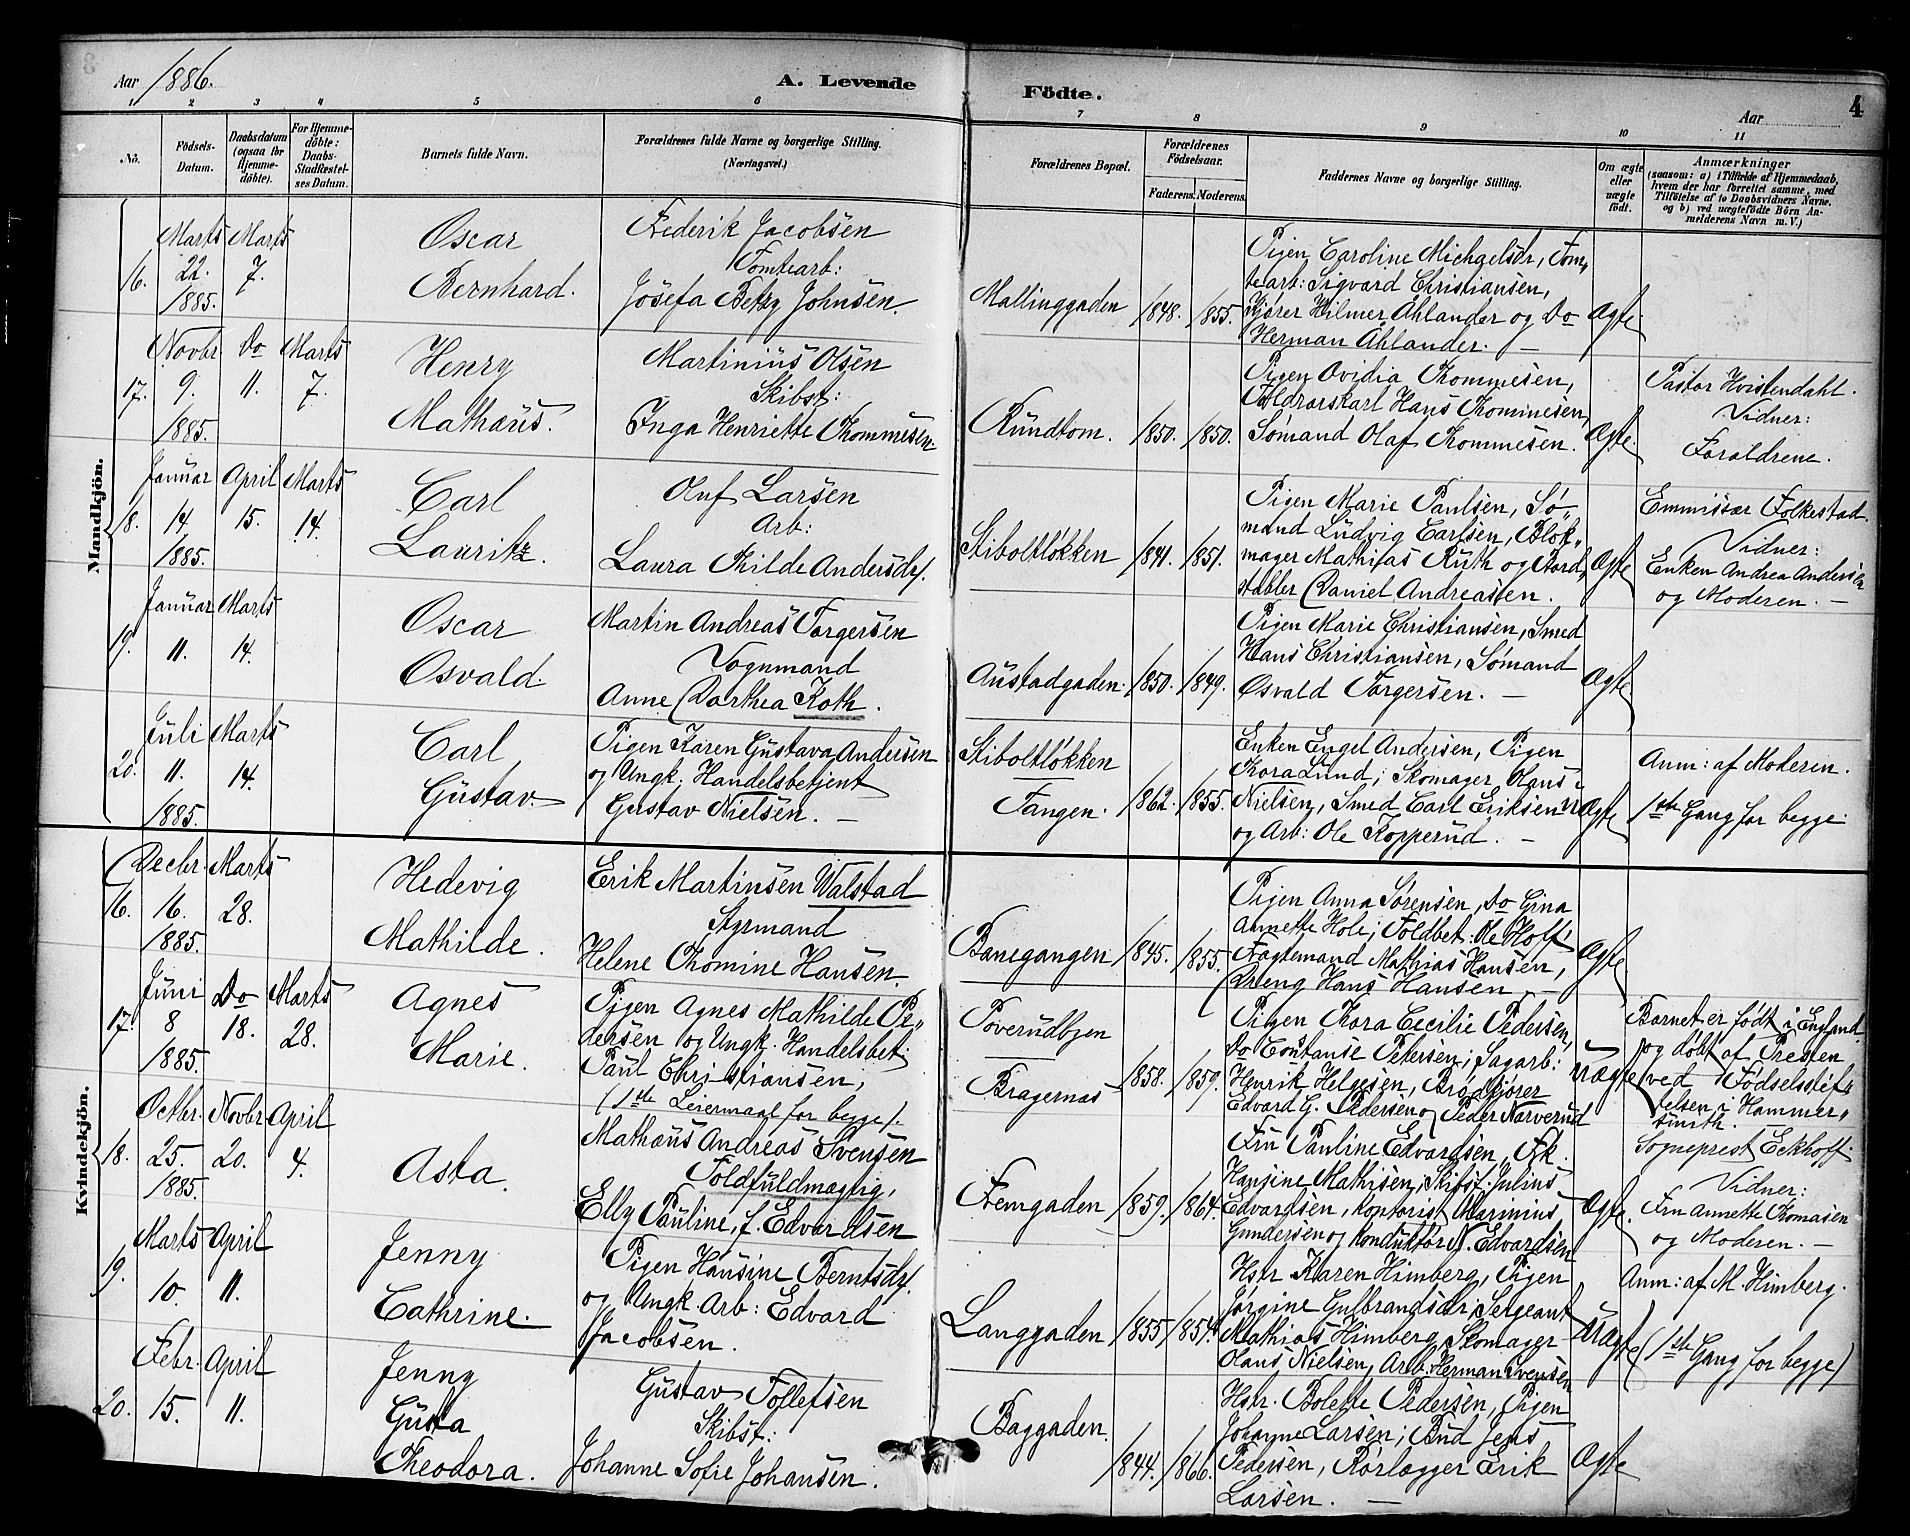 Aar 1886.
A. Levende
Födte.
4
Aar
1 2 3 4 5 6
7 8 9 10 11
No.
Födsels-Datum.
Daabsdatum (ogsaa for Hjemme-döbte).
For Hjemme-döbte: Daabs-Stadfæstel-ses Datum.
Barnets fulde Navn.
Forældrenes fulde Navne og borgerlige Stilling. (Næringsvei.)
Forældrenes Bopæl.
Forældrenes Födselsaar.
Faderens. Moderens.
Faddernes Navne og borgerlige Stilling.
Om ægte eller uægte født.
Anmærkninger
(saasom: a) i Tilfælde af Hjemmedaab, hvem der har forrettet samme, med Tilföielse af to Daabsvidners Navne. og b) ved uægtefödte Börn An-melderens Navn m.V.)
Mandkjön.
16.
Marts 22. 1885.
Marts 7.
Oscar
Bernhard.
Frederik Jacobsen
Tomtearb:
Josefa Betzy Johnsen.
Mallinggaden
1848. 1855.
Pigen Caroline Michaelsdr, Tom,
tearb: Sigvard Christiansen,
Kjører Hilmer Åhlander og Do
Herman Åhlander. —
Ægte.
17.
Novbr 9. 1885.
Do 11.
Marts 7.
Henry
Mathæus.
Martinius Olsen
Skibst:
Inga Henriette Thommesen
Rundtom.
1850. 1850.
Pigen Ovidia Thommesen,
Toldrorskarl Hans Thommesen,
Sømand Olaf Thommesen.
Ægte.
Pastor Hvistendahl.
Vidner:
Forældrene.
18.
Januar 14 1885.
April 15.
Marts 14.
Carl
Lauritz.
Oluf Larsen
Arb:
Laura Thilde Andersdr.
Stiboltløkken
1841. 1851.
Pigen Marie Paulsen, Sø„
mand Ludvig Carlsen, Blok„
mager Mathias Ruth og Bord,
stabler Daniel Andreassen.
Ægte
Emmissær Folkestad.
Vidner:
Enken Andrea Andersen
og Moderen. —
19.
Januar 11.
Marts 14.
Oscar
Osvald.
Martin Andreas Torgersen
Vognmand
Anne Dorthea Koth.
Austadgaden.
1850. 1849.
Pigen Marie Christiansen, Smed
Hans Christiansen, Sømand
Osvald Torgersen. —
Ægte
20.
Juli 11. 1885.
Marts 14.
Carl
Gustav.
Pigen Karen Gustava Andersen
og Ungk. Handelsbetjent
Gustav Nielsen. —
Stiboltløkken
Tangen.
1862. 1855.
Enken Engel Andersen, Pigen
Thora Lund; Skomager Olaus
Nielsen, Smed Carl Eriksen
og Arb: Ole Kopperud. —
uÆgte
Anm: af Moderen.
1ste Gang for begge.
Kvindekjön.
16.
Decbr. 16. 1885.
Marts 28.
Hedevig
Mathilde.
Erik Martinsen Walstad
Styrmand
Helene Thomine Hansen.
Banegangen
1845. 1855.
Pigen Anna Sørensen, Do Gina
Annette Hole; Toldbet. Ole Hoff
Fragtemand Mathias Hansen,
Dreng Hans Hansen. —
Ægte
17.
Juni 8 1885.
Do 18.
Marts 28.
Agnes
Marie.
Pigen Agnes Mathilde Pe„
dersen og Ungk. Handelsbet.
Paul Christiansen,
(1ste Leiermaal for begge).
Poverudbyen
Bragernæs
1858. 1859.
Pigen Thora Cecilie Pedersen,
Do Constanse Petersen; Sagarb:
Henrik Helgesen, Brødkjører
Edvard G. Pedersen og Peder Narverud
Uægte
Barnet er født i England
og døbt af Presten
ved Fødselsstif„
telsen i Hammer„
smith.
18.
Octbr. 25. 1885.
Novbr 20.
April 4.
Asta.
Mathæus Andreas Svensen
Toldfuldmægtig,
Elly Pauline, f. Edvardsen
Fremgaden
1859. 1864.
Fru Pauline Edvardsen, Frk.
Hansine Mathisen; Skibsf. Julius
Edvardsen, Kontorist Marinius
Gundersen og Konduktør N. Edvardsen
Ægte.
Sogneprest Eckhoff.
Vidner:
Fru Annette Thomasen
og Moderen. —
19.
Marts 10.
April 11.
Jenny
Cathrine.
Pigen Hansine Berntsdr.
og Ungk. Arb: Edvard
Jacobsen.
Langgaden
1855 1854
Hstr Karen Himberg, Pigen
Jørgine Gulbrandsdr; Sergeant
Mathias Himberg, Skomager
Olaus Nielsen, Arb: Herman Svensen
Uægte
Anm: af M. Himberg.
(1ste Gang for begge)
20.
Febr. 15.
April 11.
Jenny
Gusta
Theodora.
Gustav Tollefsen
Skibst:
Johanne Sofie Johansen.
Baggaden.
1844. 1866.
Hstr. Bolette Pedersen, Pigen
Johanne Larsen; Bud Jens
Pedersen, Rørlægger Erik
Larsen. —
Ægte